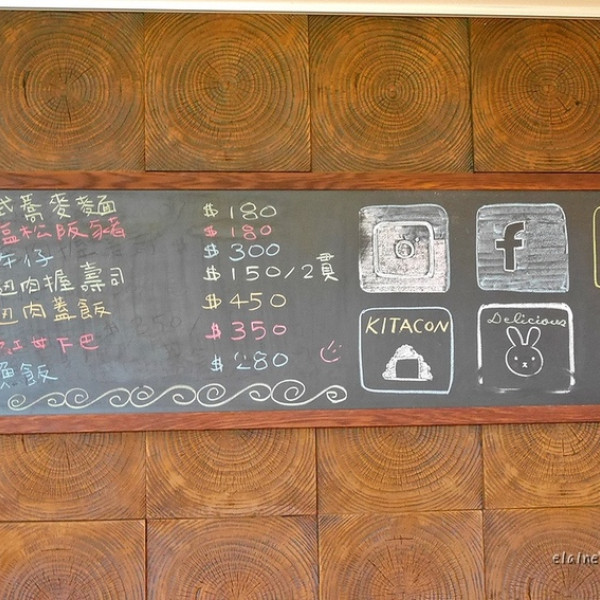 蕎麥麵 $180
松阪豬 $180
午仔 $300
肉握壽司 $150/2貫
肉蓋飯 $450
紅甘下巴 $350
魚飯 $280
f
KITACON
Delicious
elaine